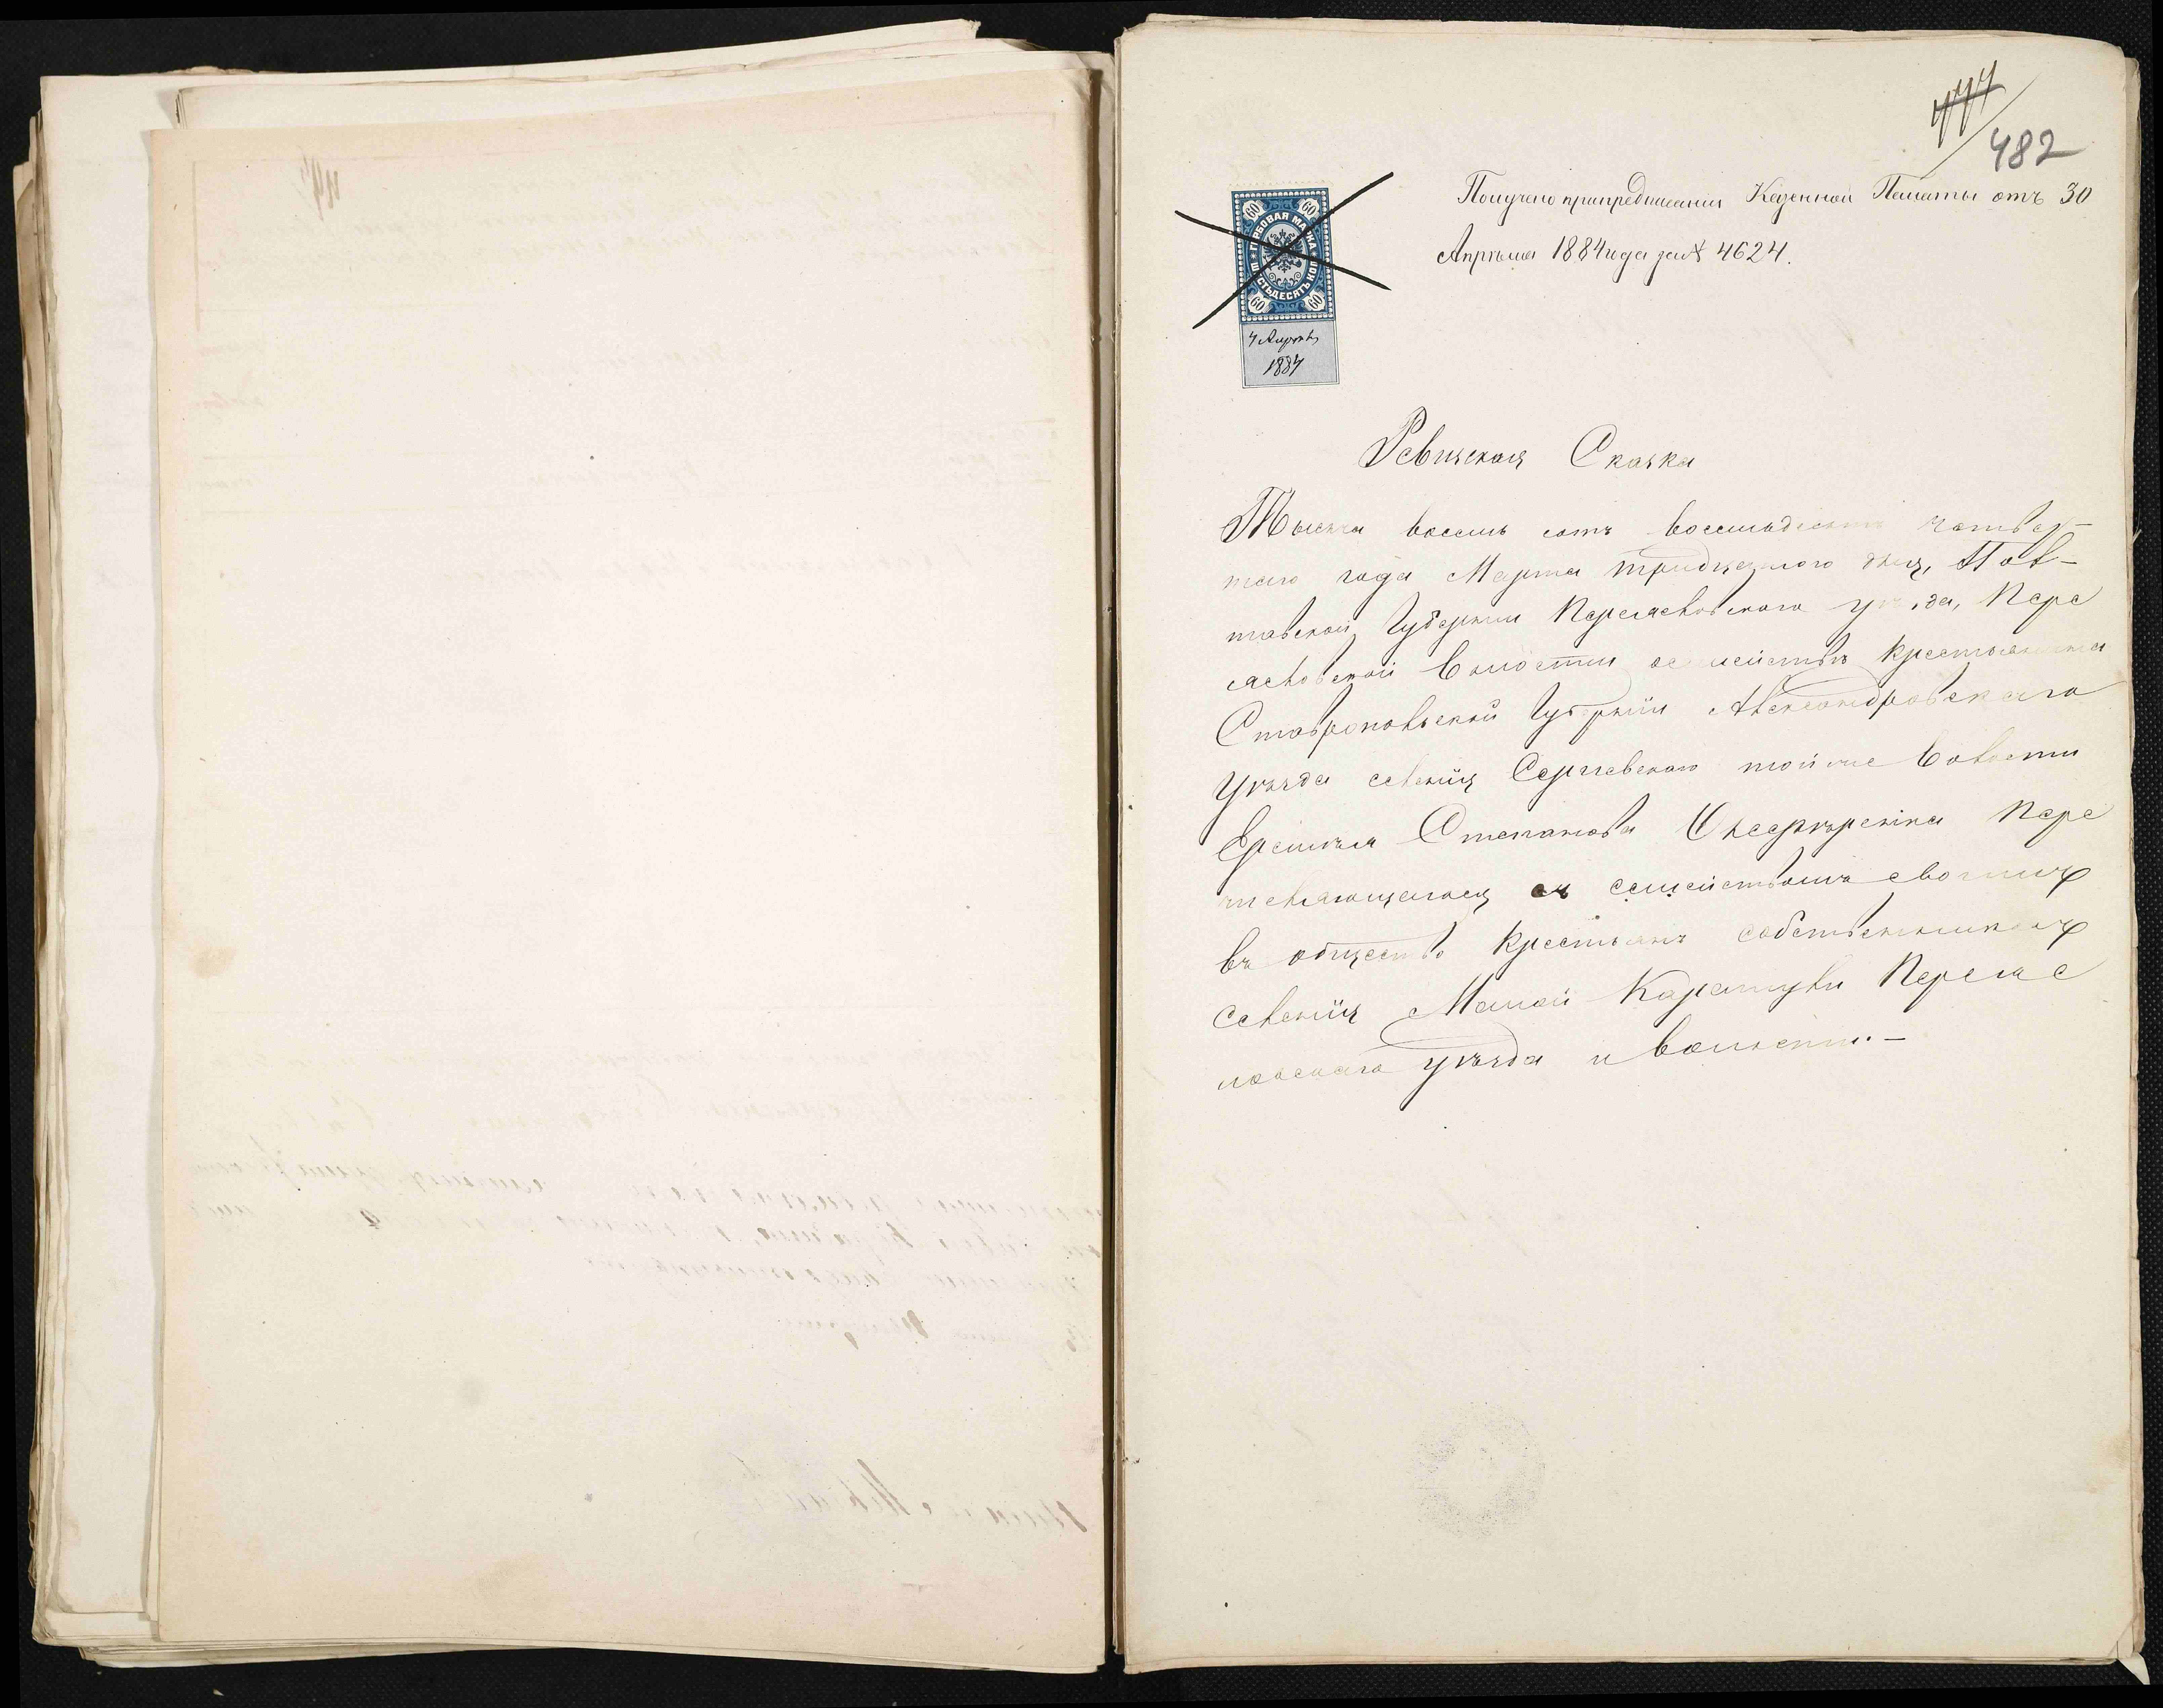 477
482
Получено при предписании Казенной Палаты отъ 30
Апрѣля 1884 года за № 4624.
60 60
ГЕРБОВАЯ МАРКА
ШЕСТЬДЕСЯТЪ КОП.
60 60
4 Апрѣля
1884
Ревизская Сказка
Тысяча восемь сотъ восемьдесятъ четвер-
таго года Марта тридцатого дня, Пол-
тавской Губернии Переяславского уѣзда, Пере
яславской волости о семействѣ крестьянина
Ставропольской Губерніи Александровскаго
Уѣзда селенія Сергіевскаго той же волости
Еремѣя Степанова пере
числяющагося съ семействомъ своимъ
въ общество крестьянъ собственниковъ
селенія Малой Каратули Переяс
лавскаго уѣзда и волости.-